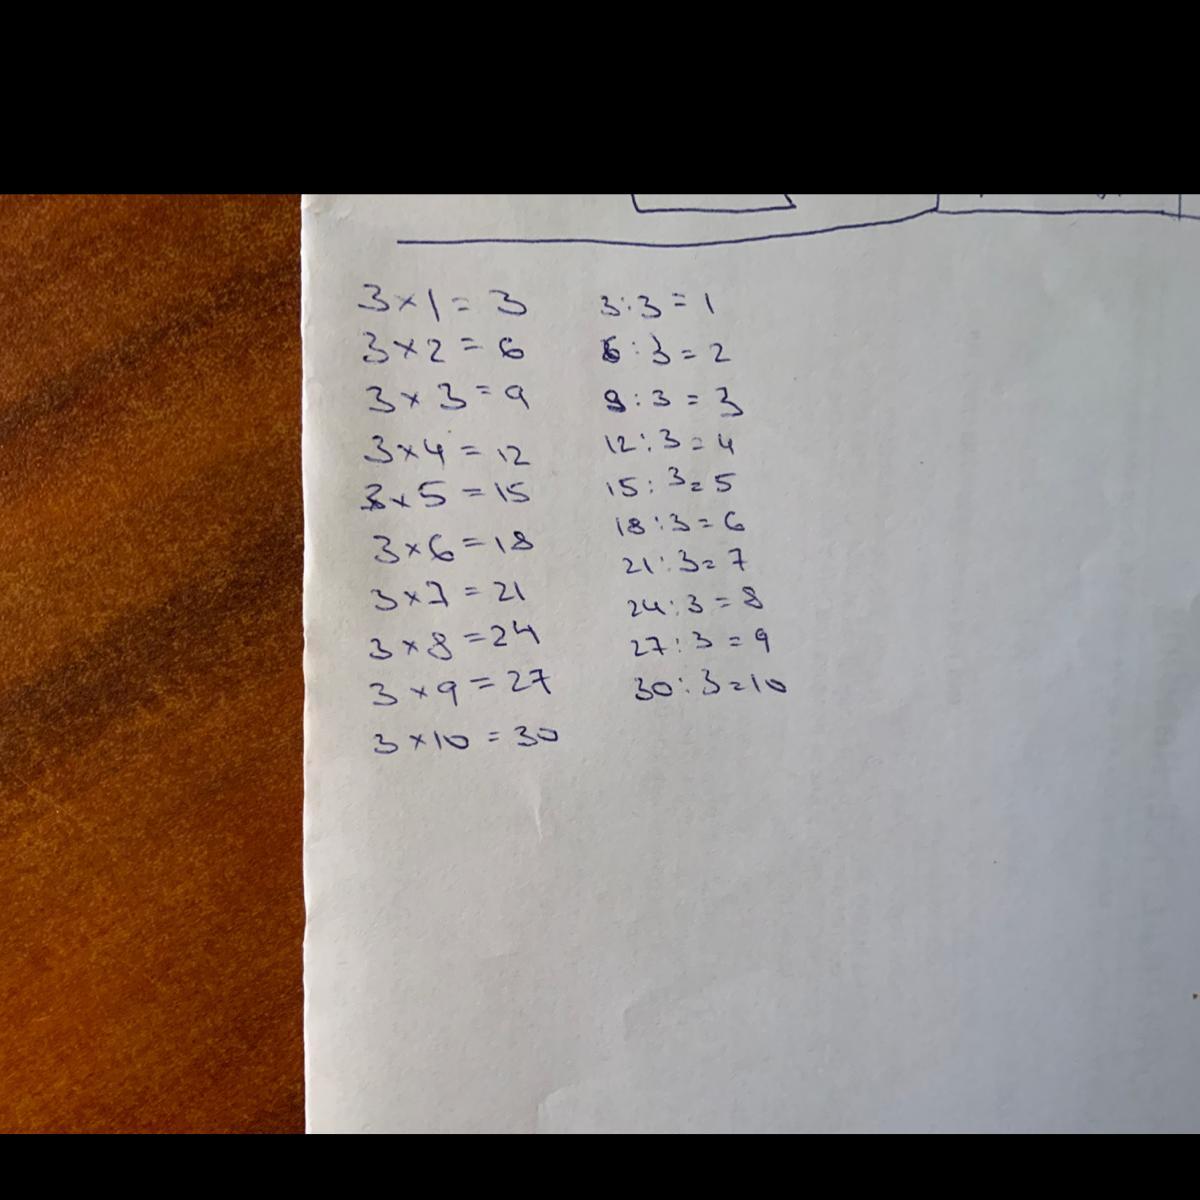 3 × 1 = 3
3 × 2 = 6
3 × 3 = 9
3 × 4 = 12
3 × 5 = 15
3 × 6 = 18
3 × 7 = 21
3 × 8 = 24
3 × 9 = 27
3 × 10 = 30
3 : 3 = 1
6 : 3 = 2
9 : 3 = 3
12 : 3 = 4
15 : 3 = 5
18 : 3 = 6
21 : 3 = 7
24 : 3 = 8
27 : 3 = 9
30 : 3 = 10